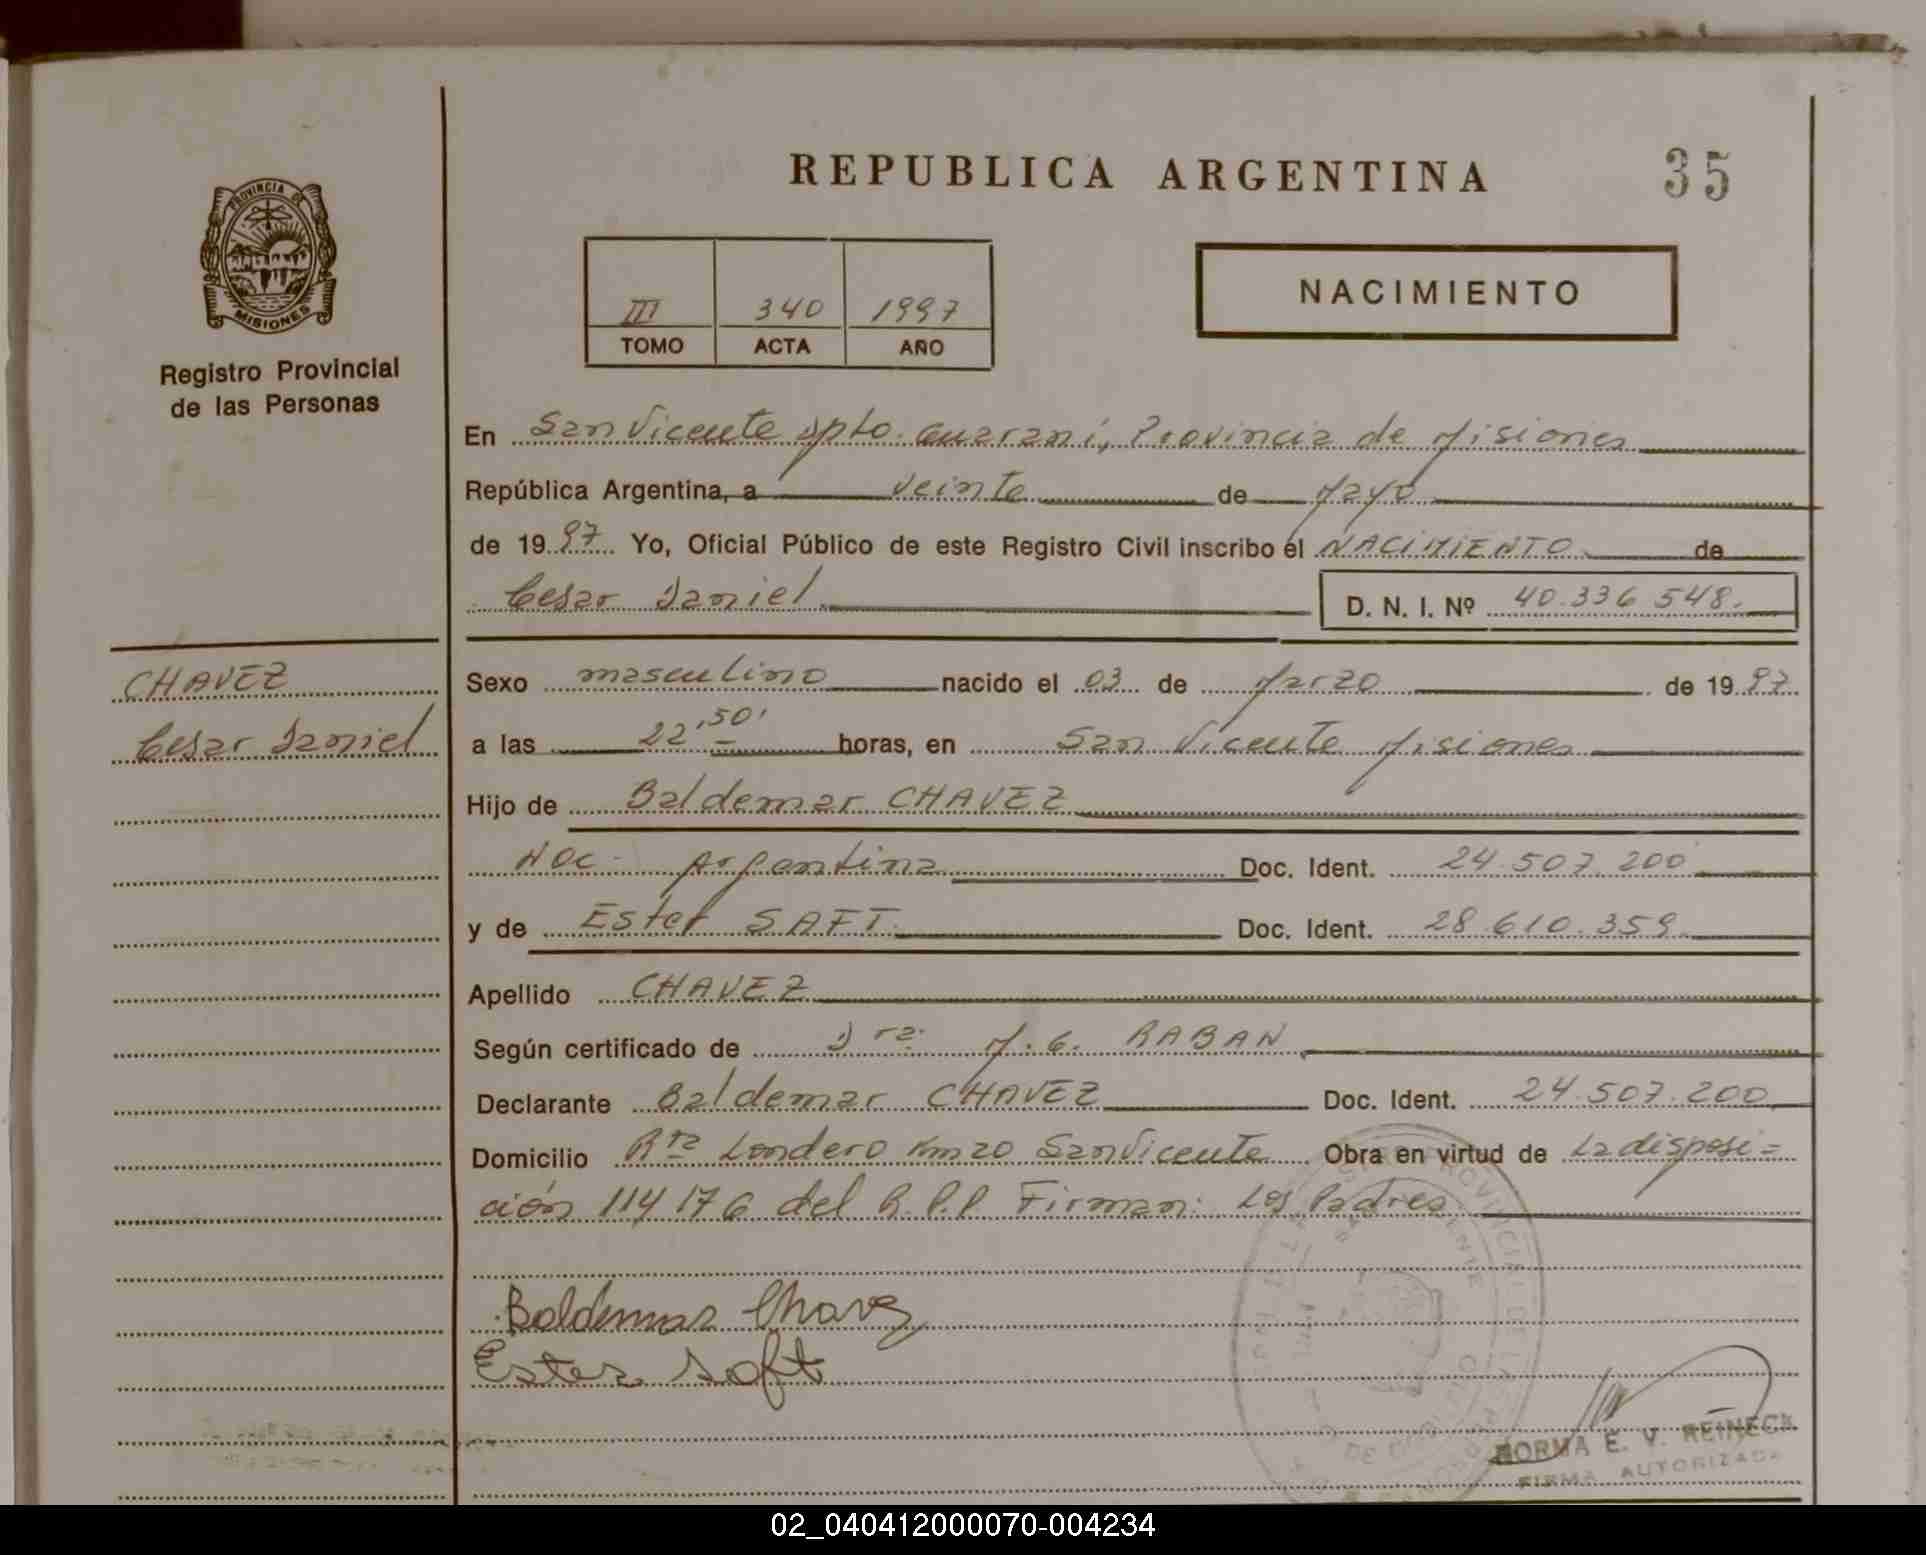 REPUBLICA ARGENTINA
35
PROVINCIA DE
MISIONES
Registro Provincial
de las Personas
III 340 1997
TOMO ACTA AÑO
NACIMIENTO
En San Vicente Dpto. Guaraní, Provincia de Misiones
República Argentina, a veinte de Mayo
de 1997 Yo, Oficial Público de este Registro Civil inscribo el NACIMIENTO de
Cesar Daniel D. N. I. Nº 40.336.548.
CHAVEZ
Cesar Daniel
Sexo masculino nacido el 03 de Marzo de 1997
a las 22,50' horas, en San Vicente Misiones
Hijo de Baldemar CHAVEZ
Nac. Argentina Doc. Ident. 24.507.200
y de Ester SAFT. Doc. Ident. 28.610.359.
Apellido CHAVEZ
Según certificado de Dra. M. G. RABAN
Declarante Baldemar CHAVEZ Doc. Ident. 24.507.200
Domicilio Rta Londero Km 20 San Vicente Obra en virtud de La disposi=
ción 114176 del R.P.P Firman: Los Padres
Baldemar Chavez
Ester Saft
NORMA E. V. REINECK
FIRMA AUTORIZADA
02_040412000070-004234